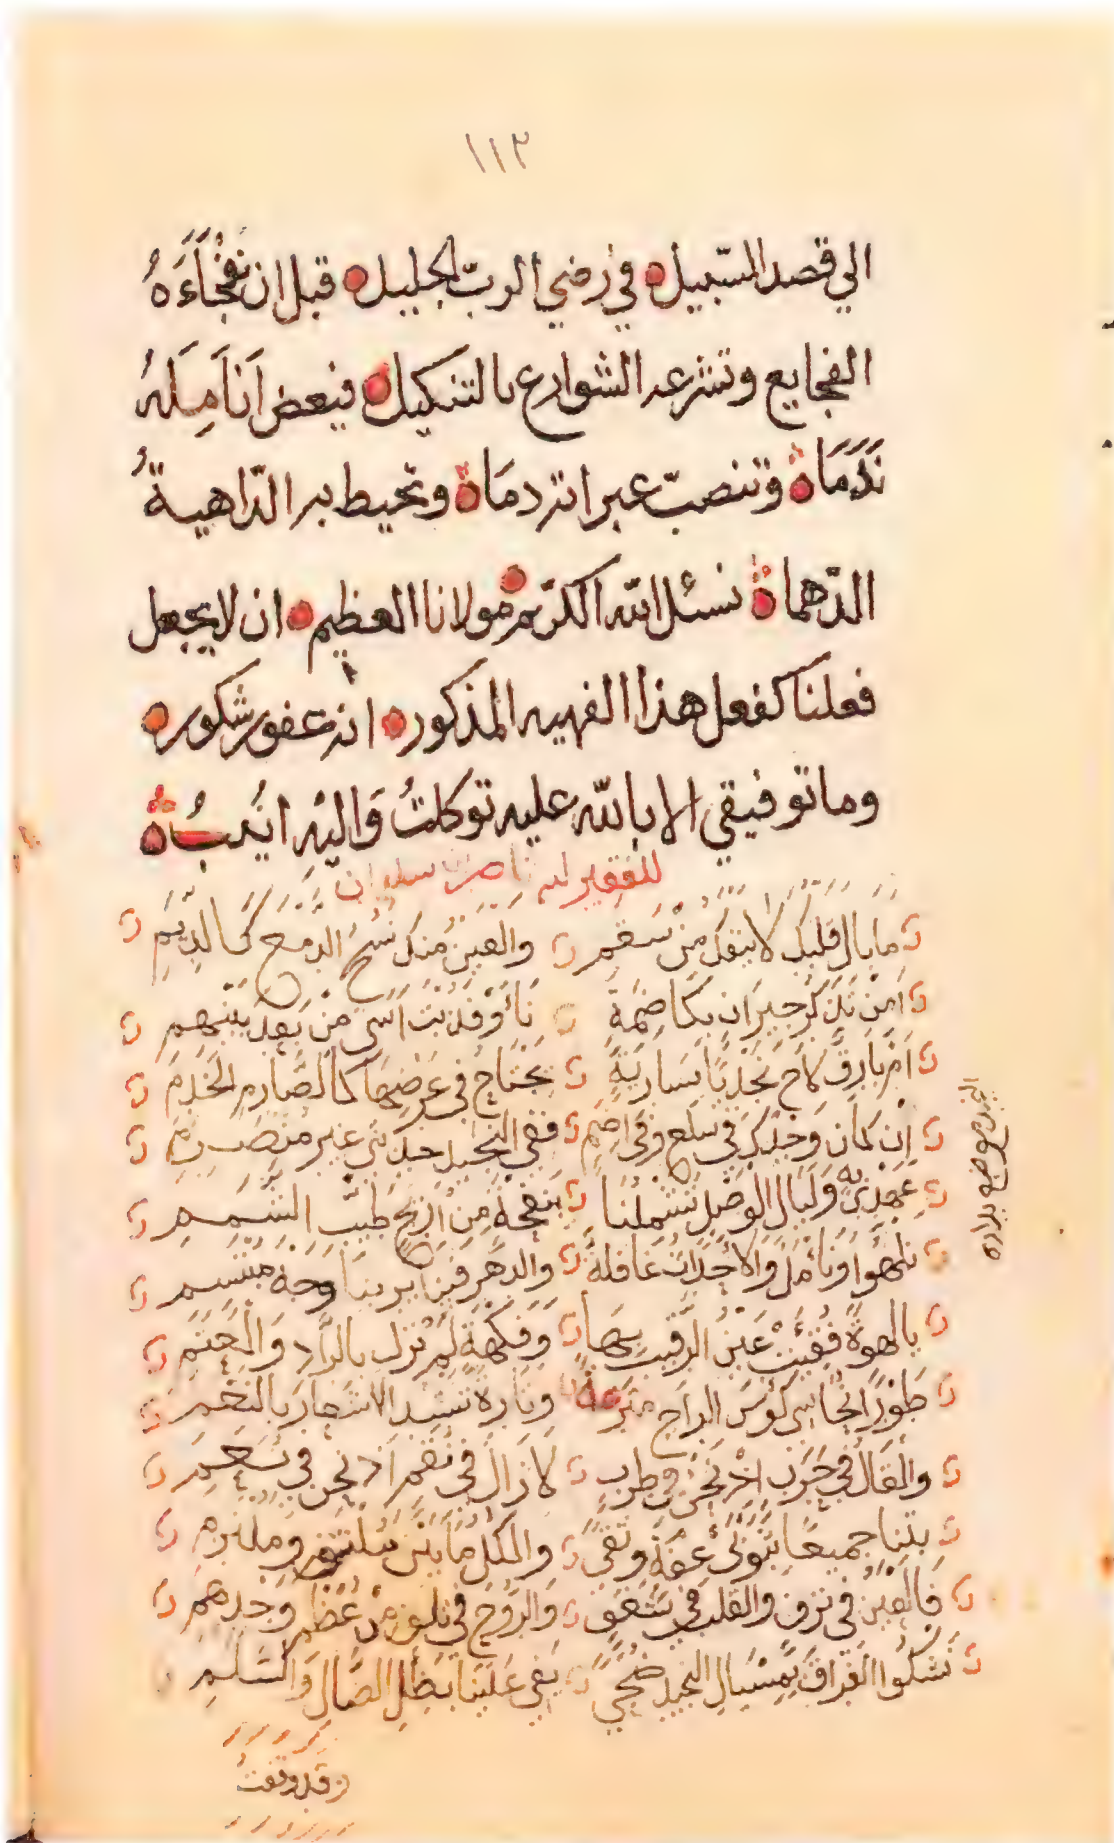 ١١٢
الي قصد السّبيل ه في رضي الربّ الجليل ه قبل ان تَفْجَأَءَهُ
الفجايع وتشرعه الشوارع بالتنكيل ه فيعض اَنَامِلَهُ
نَدَمَاة وتنصبّ عبراته دمَاة وتحيط به الدّاهيةُ
الدّهماة نسئل الله الكريم مولانا العظيم ه ان لا يجعل
فعلنا كفعل هذا الفهيه المذكور ه انه غفور شكور ه
وما توفيقي الا بالله عليه توكلتُ وَاليْهِ اُنيبُ ة
للفقير لله ناصر سليمان
ما بال قلبك لا ينفك من سقم والعين منك تسح الدمع كالديم
اَمن تذكر جيران بكاضمة نأو وقد بت اسى من بعد بينهم
اَم بارق لاح نجديا بسارية يجتاح في عرضها كالصارم الخذم
ان كان وجدك في سلع وفي اضم ففي النجيد حديثي غير منصرم
عهدي به وليال الوصل تشملنا بنفحة من اريج طيب الشمم
نلهوا ونأمل والاحداث غافلة والدهر فينا يرينا وجه مبتسم
يا لهوة فقئت عين الرقيب بها وفكهة لم تزل بالراد والعتم
طورا نحاسي كوس الراح مترعة وتارة ننشد الاشعار بالنغم
والقال في حرب اذ نحن في طرب لا زال في نقم اذ نحن في نعم
بتنا جميعا بثوبي عفة وتقى والكل ما بين ملتثم وملتزم
فالعين في نزف والقلب في شغف والروح في تلف من عظم وجدهم
نشكوا الفراق بمسيال النجيد ضحى يفي علينا بظل الضال والسلم
وقد وقفت
النجيد موضع بداره